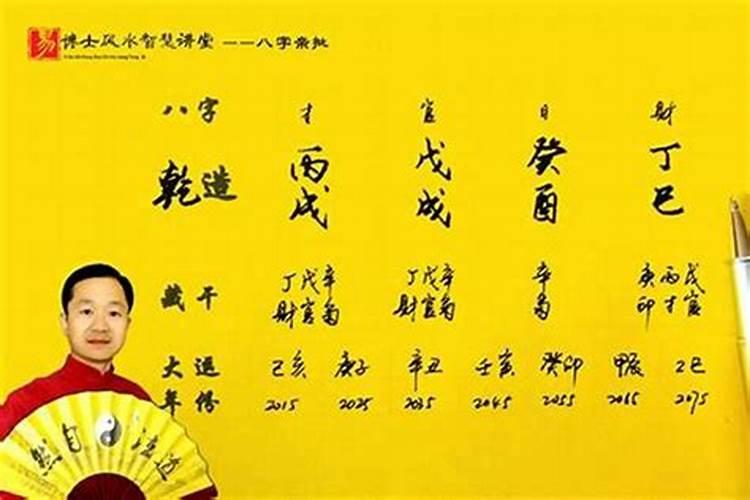 易 博士风水智慧讲堂 ——八字亲批
八字 才 官 日 财
乾造 丙 戊 癸 丁
戌 戌 酉 巳
藏干 丁戊辛 丁戊辛 辛 庚丙戊
财官枭 财官枭 枭 印才官
大运 己亥 庚子 辛丑 壬寅 癸卯 甲辰 乙巳
年 2015 2025 2035 2045 2055 2065 2075
道法自然